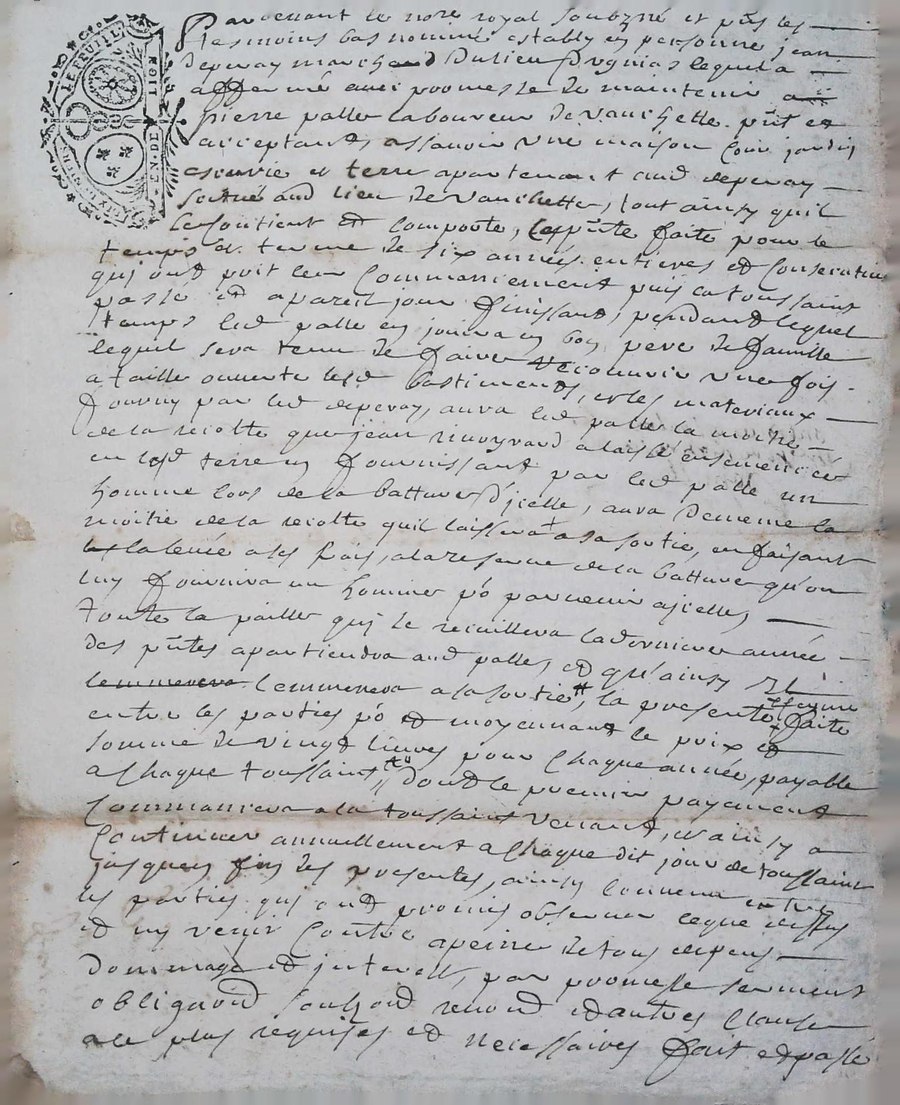 Pardevant le nore royal soubzné et pñts les
tesmoins bas nommé estably en personne jean
deperay marchand du lieu
affermé avec promesse de maintenir a
pierre palle laboureur de vauchette pñt et
acceptant, assavoir une maison Cour jardin
escurie et terre apartenant aud deperay
scitué aud lieu de vauchette, tout ainsy quil
se contient et comporte, la pñte faite pour le
temps et terme de six années entieres et Consecutive
qui ont prit leur Commancement puis la toussaint
passé et a pareil jour finissant, pendant lequel
temps led palle en jouira en bon pere de famille
lequel sera tenu de faire recouvrir une fois
a taille ouverte lesd bastiments, et les materiaux
fourny par led deperay, aura led palle la moitié
de la recolte que jean a laissé ensemencée
en lad terre en fournissant par led palle un
homme lors de la batture d'jcelle, aura de meme la
moitié de la recolte quil laissera a sa sortie, en faisant
la levée a ses frais, a la reserve de la batture qu'on
luy fournira un homme po parvenir a jcelle,
toutte la paille qui se recuillera la derniere année
des pñtes apartiendra aud palle, et qu'ainsy il
lemmenera lemmenera a la sortie #, la presente fferme faite
entre les parties po et moyennant le prix et
somme de vingt livres pour Chaque année, payable
a Chaque toussaint dont le premier payement
Commancera a la toussaint venant, et ainsy a
Continuer annuellement a Chaque dit jour de toussaint
jusques fin des presentes, ainsy Convenu entre
les parties qui ont promis observer ceque dessus
et ny venir Contre a peine de tous depens
dommage et jnterest, par promesse serment
obligaõn soubzon renoon et autres Clause
a ce plus requises et necessaires fait et passé
LIGNON
EN·DE